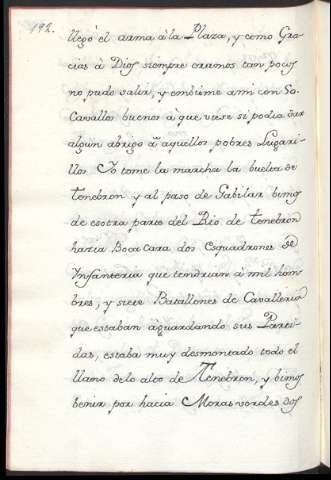 192.
llegò el arma à la Plaza, y como Gra-
cias à Dios siempre eramos tan pocos
no pudo salir, y embiome ami con 50.
Cavallos buenos à que viese si podia dar
algun abrigo à aquellos pobres Lugari-
llos Yo tome la marcha la buelta de
tenebron y al paso de Gabilan bimos
de esotra parte del Rio de tenebron
hazia Boca Cara dos Esquadrones de
Infanteria que tendrian à mil hom-
bres, y siete Batallones de Cavalleria
que estaban àguardando sus Parti-
das, estaba muy desmontado todo el
llano delo alto de Tenebron, y bimos
benir por hacia Morasverdes dos